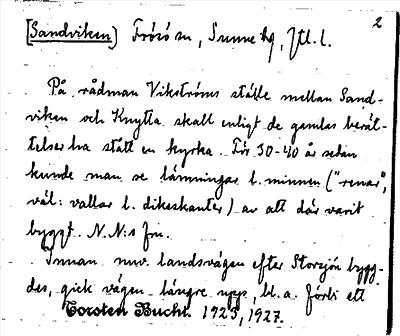 2
[Sandviken) Frösö sn, Sunne hg, Jtl. l.
På rådman Vikströms ställe mellan Sand-
viken och Knytta skall enligt de gamles berät-
telser ha stått en kyrka. För 30-40 år sedan
kunde man se lämningar l. minnen ("renar",
väl: vallar l. dikeskanter) av att där varit
byggt. N.N:s fru.
Innan nuv. landsvägen efter Storsjön bygg-
des, gick vägen längre upp, bl.a. förbi ett
Torsten Bucht. 1925, 1927.